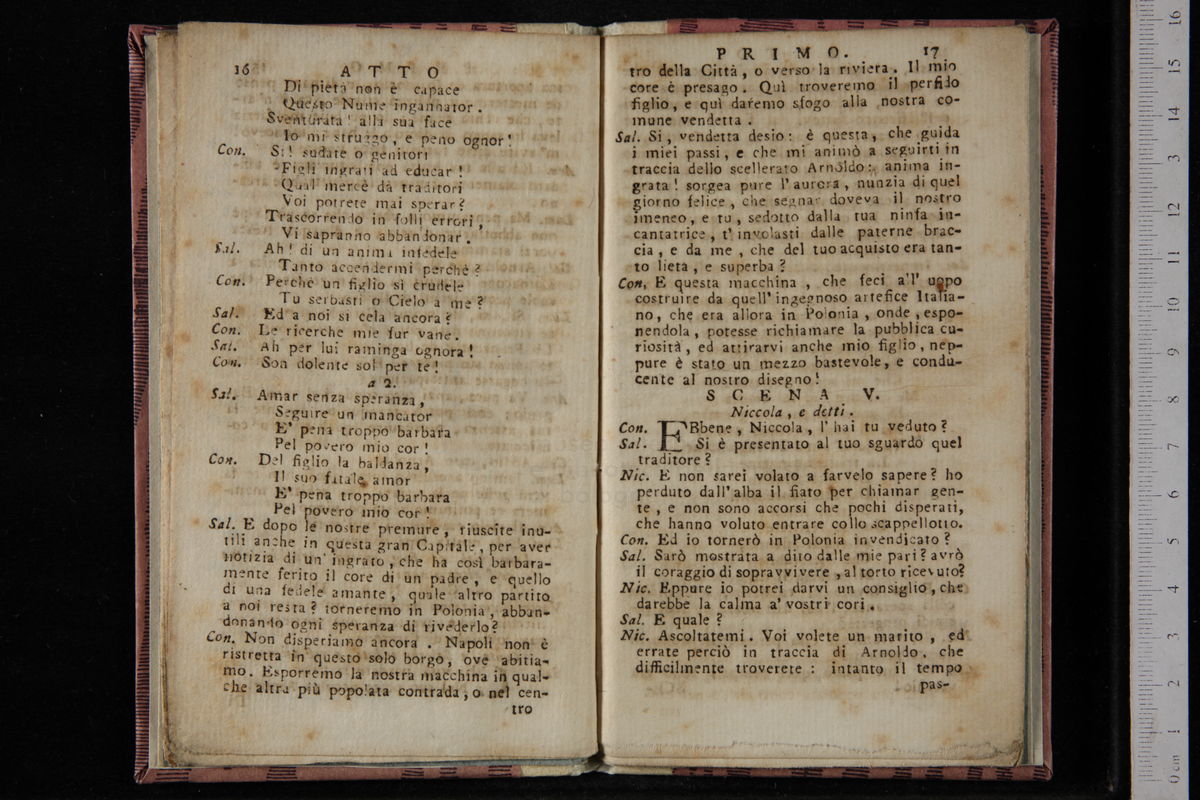 16 ATTO
Di pietà non è capace
Questo Nume ingannator.
Sventurata! alla sua face
Io mi struggo, e peno ognor!
Con. Si! sudate o genitori
Figli ingrati ad educar!
Qual mercè da traditori
Voi potrete mai sperar?
Trascorrendo in folli errori,
Vi sapranno abbandonar.
Sal. Ah! di un anima infedele
Tanto accendermi perchè?
Con. Perchè un figlio sì crudele
Tu serbasti o Cielo a me?
Sal. Ed a noi si cela ancora?
Con. Le ricerche mie fur vane.
Sal. Ah per lui raminga ognora!
Con. Son dolente sol per te!
a 2.
Sal. Amar senza speranza,
Seguire un mancator
E' pena troppo barbara
Pel povero mio cor!
Con. Del figlio la baldanza,
Il suo fatale amor
E' pena troppo barbara
Pel povero mio cor!
Sal. E dopo le nostre premure, riuscite inu-
tili anche in questa gran Capitale, per aver
notizia di un' ingrato, che ha così barbara-
mente ferito il core di un padre, e quello
di una fedele amante, quale altro partito
a noi resta? torneremo in Polonia, abban-
donando ogni speranza di rivederlo?
Con. Non disperiamo ancora. Napoli non è
ristretta in questo solo borgo, ove abitia-
mo. Esporremo la nostra macchina in qual-
che altra più popolata contrada, o nel cen-
tro
PRIMO. 17
tro della Città, o verso la riviera. Il mio
core è presago. Quì troveremo il perfido
figlio, e quì daremo sfogo alla nostra co-
mune vendetta.
Sal. Si, vendetta desio: è questa, che guida
i miei passi, e che mi animò a seguirti in
traccia dello scellerato Arnoldo: anima in-
grata! sorgea pure l'aurora, nunzia di quel
giorno felice, che segnar doveva il nostro
imeneo, e tu, sedotto dalla tua ninfa in-
cantatrice, t'involasti dalle paterne brac-
cia, e da me, che del tuo acquisto era tan-
to lieta, e superba?
Con, E questa macchina, che feci all' uopo
costruire da quell' ingegnoso artefice Italia-
no, che era allora in Polonia, onde, espo-
nendola, potesse richiamare la pubblica cu-
riosità, ed attirarvi anche mio figlio, nep-
pure è stato un mezzo bastevole, e condu-
cente al nostro disegno!
SCENA V.
Niccola, e detti.
Con. EBbene, Niccola, l'hai tu veduto?
Sal. Si è presentato al tuo sguardo quel
traditore?
Nic. E non sarei volato a farvelo sapere? ho
perduto dall' alba il fiato per chiamar gen-
te, e non sono accorsi che pochi disperati,
che hanno voluto entrare collo scappellotto.
Con. Ed io tornerò in Polonia invendicato?
Sal. Sarò mostrata a dito dalle mie pari? avrò
il coraggio di sopravvivere, al torto ricevuto?
Nic. Eppure io potrei darvi un consiglio, che
darebbe la calma a' vostri cori.
Sal. E quale?
Nic. Ascoltatemi. Voi volete un marito, ed
errate perciò in traccia di Arnoldo, che
difficilmente troverete: intanto il tempo
pas-
0 cm 1 2 3 4 5 6 7 8 9 10 11 12 13 14 15 16